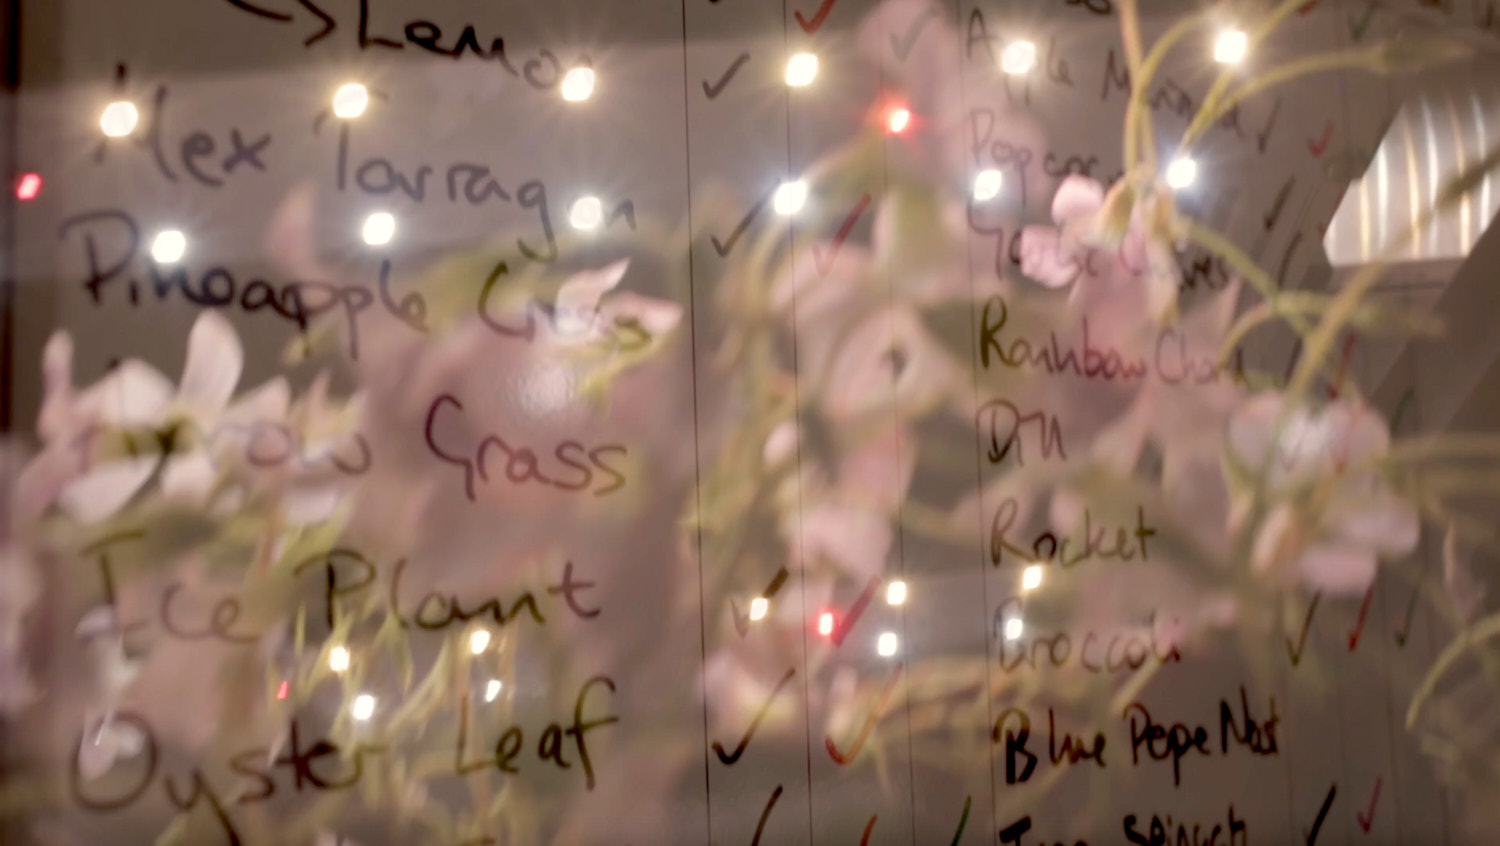 Lemon
Mex Tarragon
Pineapple Grass
Grass
Ice Plant
Oyster Leaf
Popcorn
Rainbow Chard
Dill
Rocket
Broccoli
Blue Pepe Nast
Spinach